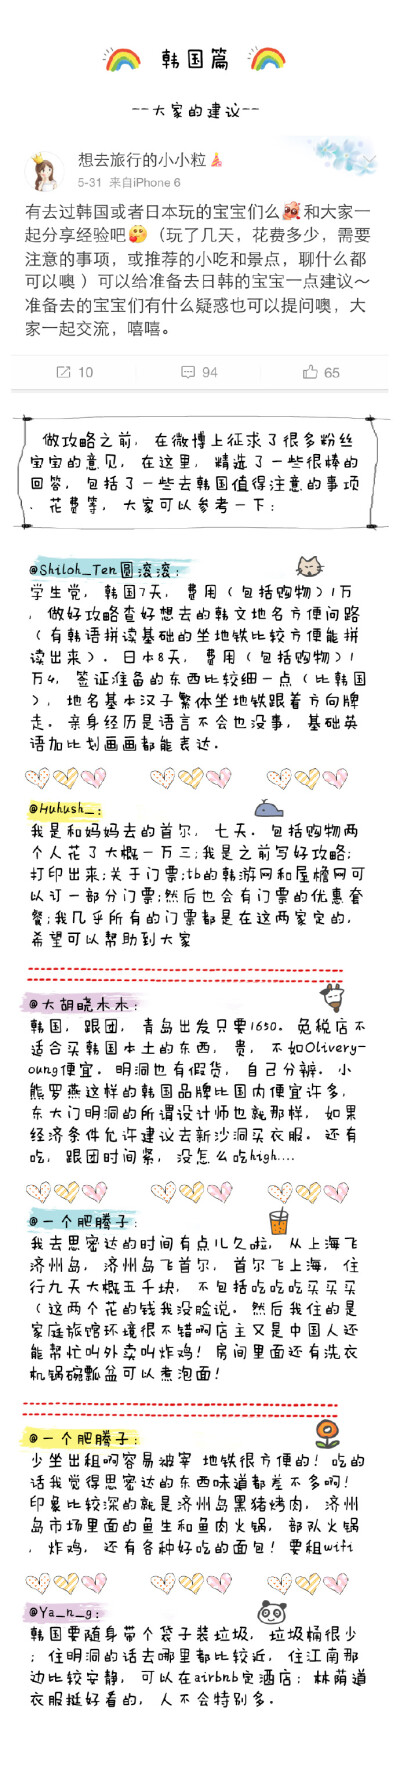 韩国篇
--大家的建议--
想去旅行的小小粒
5-31 来自iPhone 6
有去过韩国或者日本玩的宝宝们么和大家一
起分享经验吧（玩了几天，花费多少，需要
注意的事项，或推荐的小吃和景点，聊什么都
可以噢 ）可以给准备去日韩的宝宝一点建议～
准备去的宝宝们有什么疑惑也可以提问噢，大
家一起交流，嘻嘻。
10 94 65
做攻略之前，在微博上征求了很多粉丝
宝宝的意见，在这里，精选了一些很棒的
回答，包括了一些去韩国值得注意的事项
、花费等，大家可以参考一下：
@Shiloh_Ten圆滚滚：
学生党，韩国7天，费用（包括购物）1万
，做好攻略查好想去的韩文地名方便问路
（有韩语拼读基础的坐地铁比较方便能拼
读出来）。日本8天，费用（包括购物）1
万4，签证准备的东西比较细一点（比韩国
），地名基本汉子繁体坐地铁跟着方向牌
走。亲身经历是语言不会也没事，基础英
语加比划画画都能表达。
@Huhush_：
我是和妈妈去的首尔，七天。包括购物两
个人花了大概一万三;我是之前写好攻略;
打印出来;关于门票;tb的韩游网和屋檐网可
以订一部分门票;然后也会有门票的优惠套
餐;我几乎所有的门票都是在这两家定的，
希望可以帮助到大家
@大胡晓木木：
韩国，跟团，青岛出发只要1650。免税店不
适合买韩国本土的东西，贵，不如Olivery-
oung便宜。明洞也有假货，自己分辨。小
熊罗燕这样的韩国品牌比国内便宜许多，
东大门明洞的所谓设计师也就那样，如果
经济条件允许建议去新沙洞买衣服。还有
吃，跟团时间紧，没怎么吃high....
@一个肥腾子：
我去思密达的时间有点儿久啦，从上海飞
济州岛，济州岛飞首尔，首尔飞上海，住
行九天大概五千块，不包括吃吃吃买买买
（这两个花的钱我没脸说。然后我住的是
家庭旅馆环境很不错啊店主又是中国人还
能帮忙叫外卖叫炸鸡！房间里面还有洗衣
机锅碗瓢盆可以煮泡面！
@一个肥腾子：
少坐出租啊容易被宰 地铁很方便的！吃的
话我觉得思密达的东西味道都差不多啊！
印象比较深的就是济州岛黑猪烤肉，济州
岛市场里面的鱼生和鱼肉火锅，部队火锅
，炸鸡，还有各种好吃的面包！要租wifi
@Ya_n_g：
韩国要随身带个袋子装垃圾，垃圾桶很少
；住明洞的话去哪里都比较近，住江南那
边比较安静，可以在airbnb定酒店；林荫道
衣服挺好看的，人不会特别多。